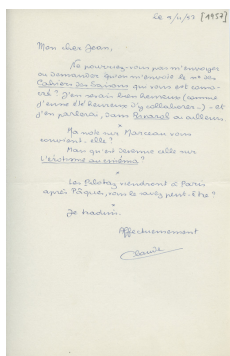 Le 9/4/43 [1957]
Mon cher Jean,
Ne pourriez-vous par m'envoyer
ou demander qu'on m'envoie le n° des
Cahiers des Saisons qui vous est consa-
cré ? J'en serais bien heureux (comme
j'eusse été heureux d'y collaborer...) - et
j'en parlerai, dans ailleurs.
*
Ma note sur Marceau vous
convient-elle ?
Mais qu'est devenue celle sur
L'érotisme au cinéma ?
*
Les viendront à Paris
après Pâques, vous le savez peut-être ?
*
Je traduis.
Affectueusement
Claude